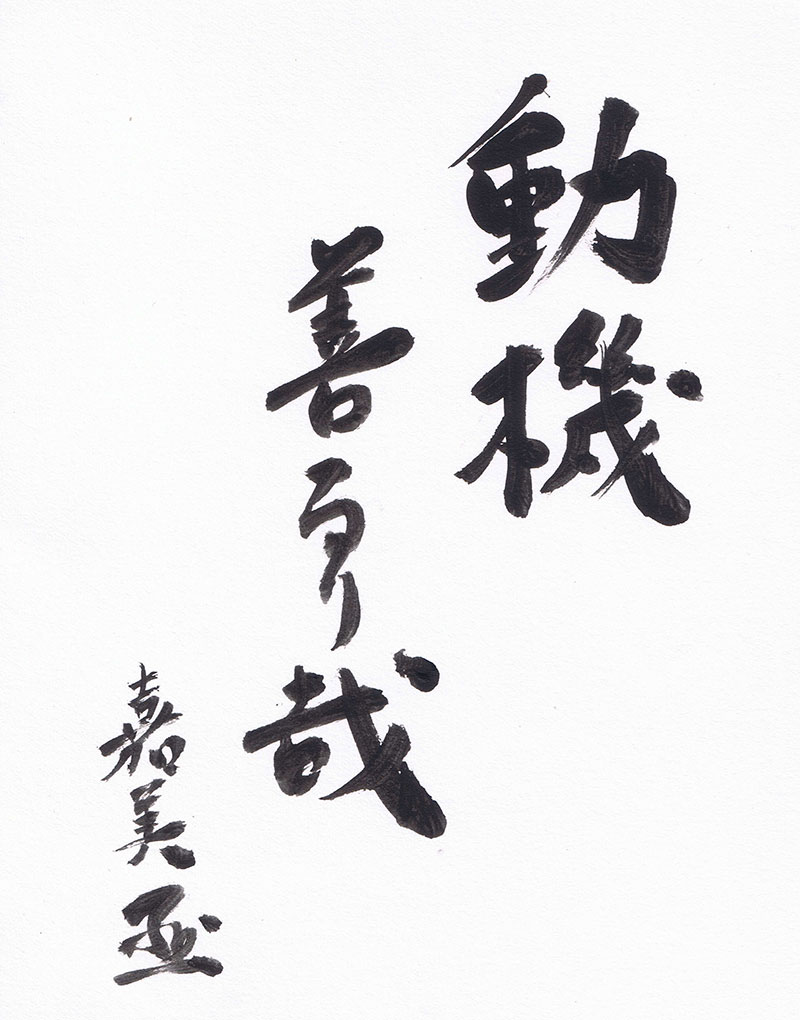 動機
善なり哉
嘉美